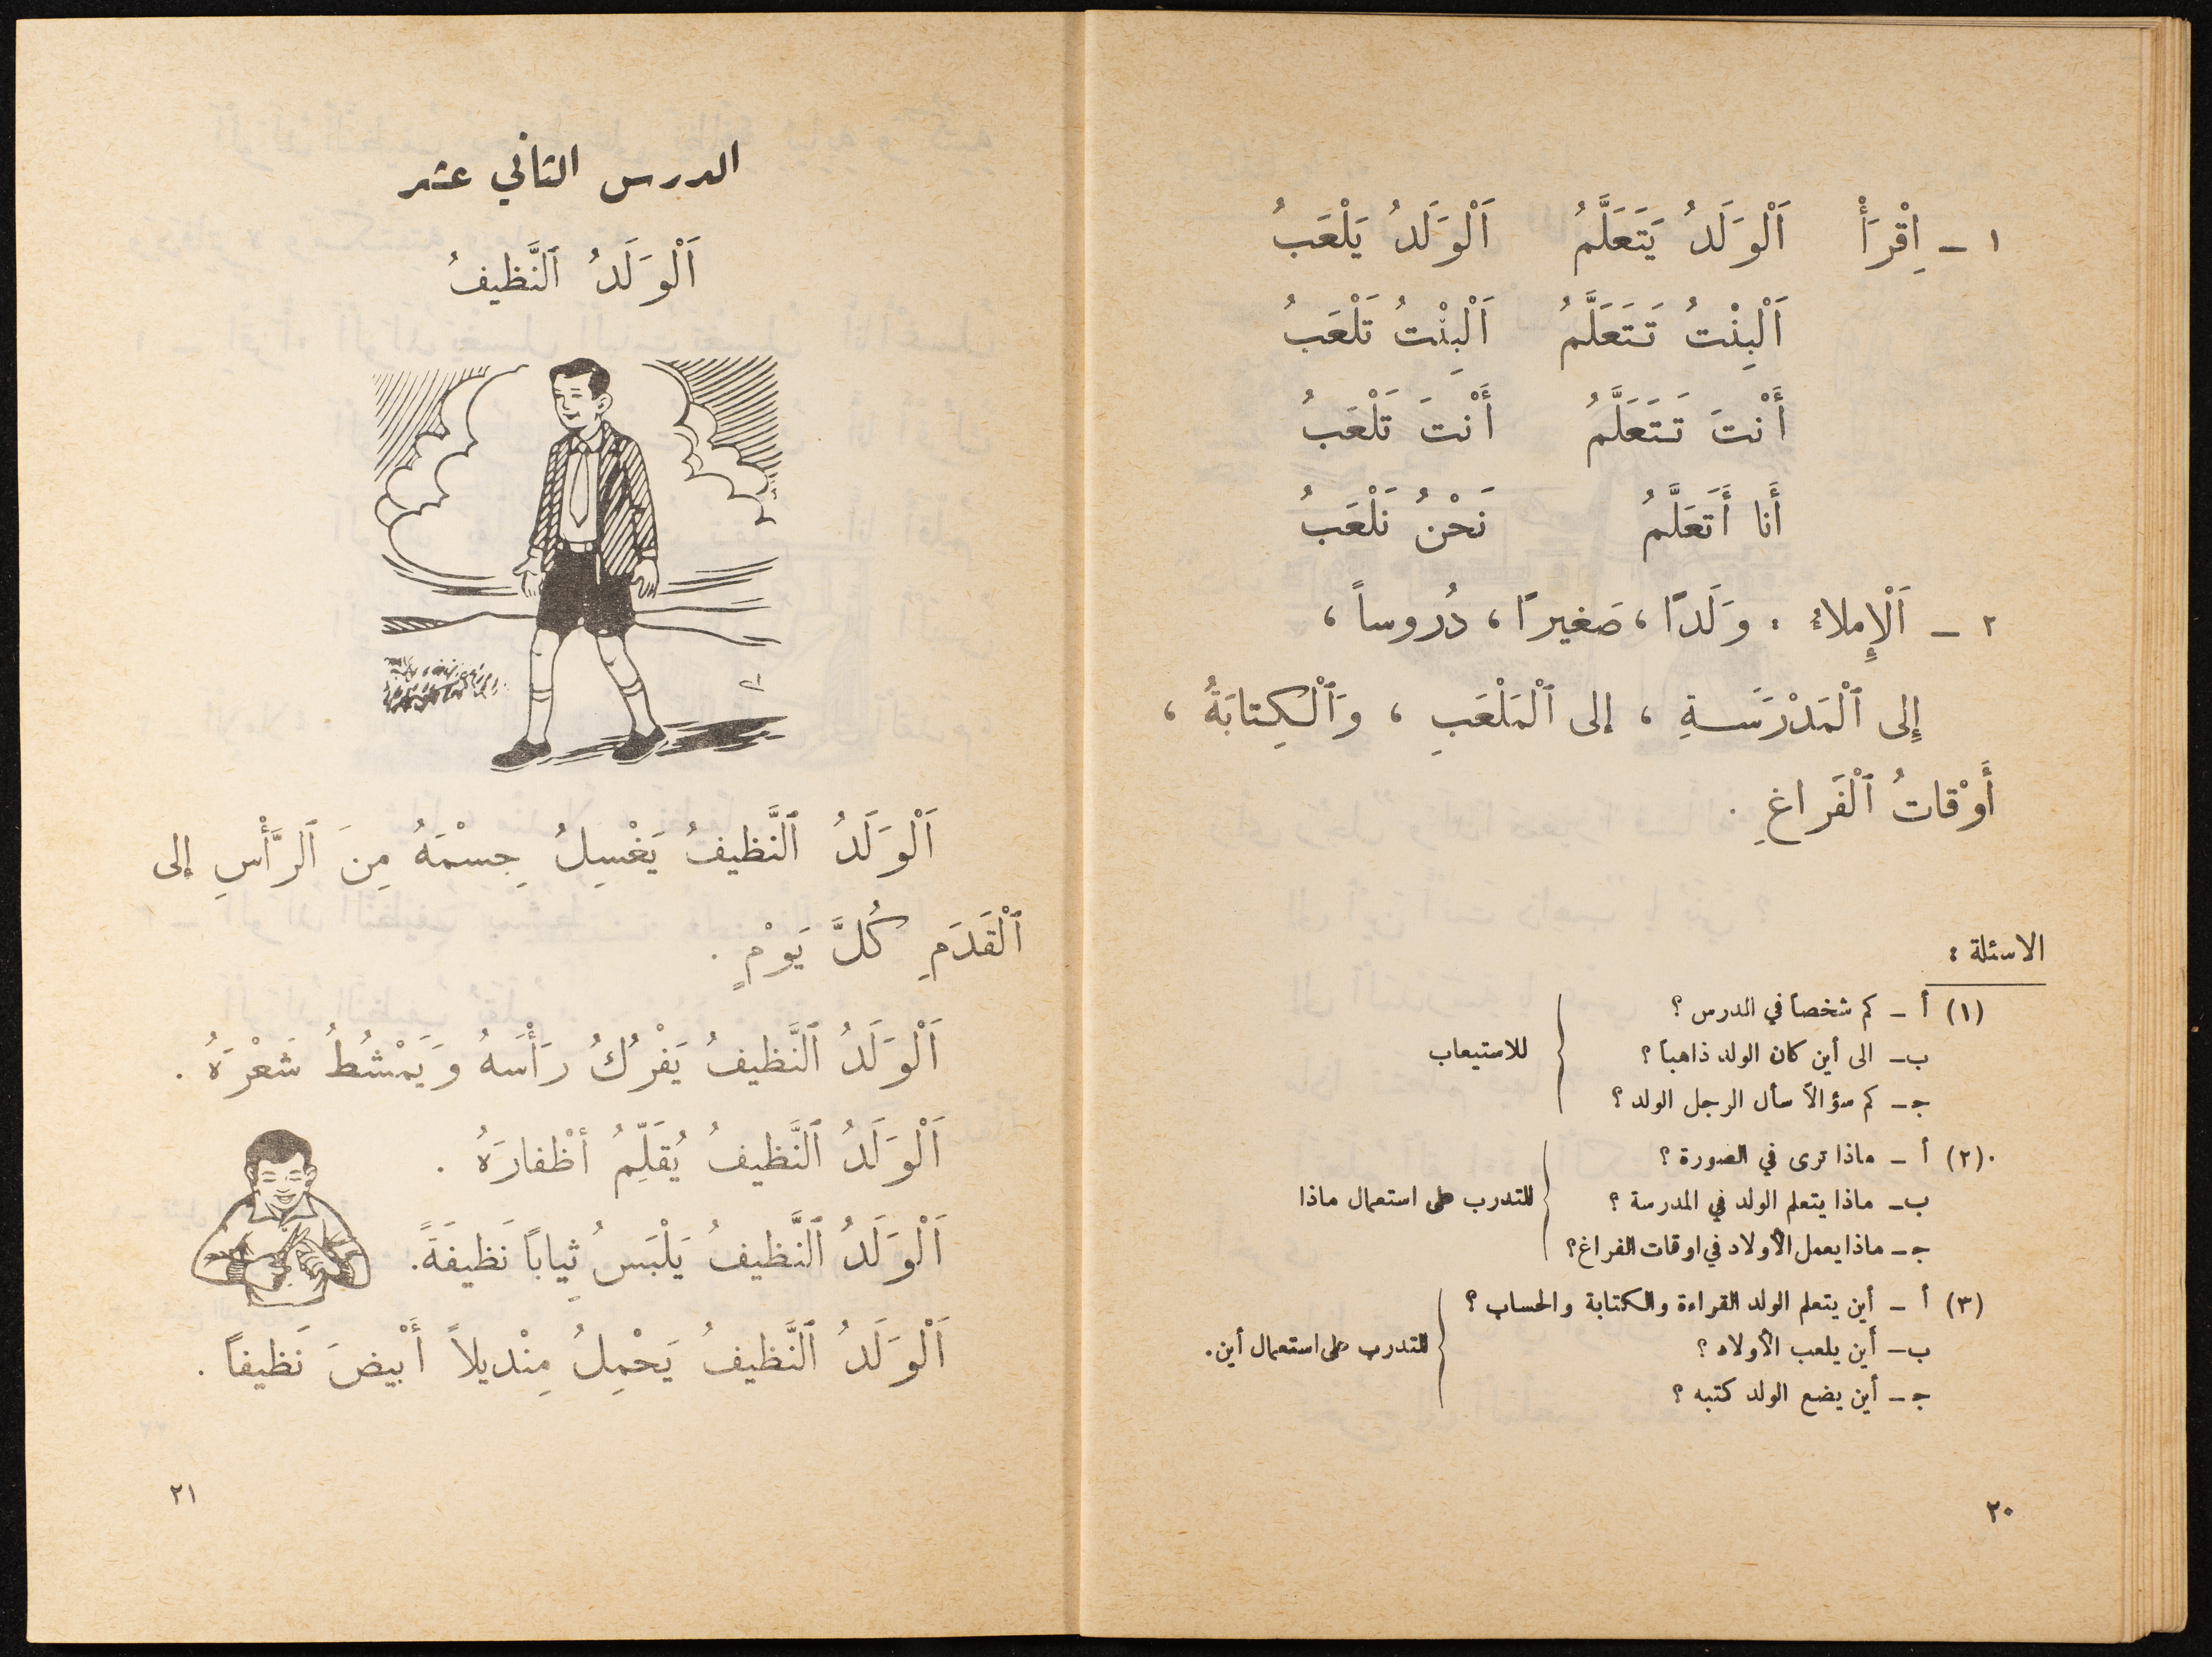 ١ – اِقْرَأْ اَلْوَلَدُ يَتَعَلَّمُ اَلْوَلَدُ يَلْعَبُ
اَلْبِنْتُ تَتَعَلَّمُ اَلْبِنْتُ تَلْعَبُ
أَنْتَ تَتَعَلَّمُ أَنْتَ تَلْعَبُ
أَنا أَتَعَلَّمُ نَحْنُ نَلْعَبُ
٢ – اَلْإِملاءُ . وَلَدًا ، صَغيرًا ، دُروساً ،
إِلى ٱلْمَدْرَسَةِ ، إلى ٱلْمَلْعَبِ ، وَٱلْكِتابَةُ ،
أَوْقاتُ ٱلْفَراغِ .
الاسئلة :
(١) أ – كم شخصاً في الدرس ؟
ب – الى أين كان الولد ذاهباً ؟
للاستيعاب
جـ – كم سؤالاً سأل الرجل الولد ؟
(٢) أ – ماذا ترى في الصورة ؟
ب – ماذا يتعلم الولد في المدرسة ؟
للتدرب على استعمال ماذا
جـ – ماذا يعمل الأولاد في اوقات الفراغ؟
(٣) أ – أين يتعلم الولد القراءة والكتابة والحساب ؟
ب – أين يلعب الأولاد ؟
للتدرب على استعمال أين.
جـ – أين يضع الولد كتبه ؟
٢٠
الدرس الثاني عشر
اَلْوَلَدُ ٱلنَّظيفُ
اَلْوَلَدُ ٱلنَّظيفُ يَغْسِلُ جِسْمَهُ مِنَ ٱلرَّأْسِ إلى
ٱلْقَدَمِ كُلَّ يَوْمٍ .
اَلْوَلَدُ ٱلنَّظيفُ يَفْرُكُ رَأْسَهُ وَيَمْشُطُ شَعْرَهُ .
اَلْوَلَدُ ٱلنَّظيفُ يُقَلِّمُ أظْفارَهُ .
اَلْوَلَدُ ٱلنَّظيفُ يَلْبَسُ ثِياباً نَظيفَةً.
اَلْوَلَدُ ٱلنَّظيفُ يَحْمِلُ مِنْديلاً أَبْيضَ نَظيفاً .
٢١